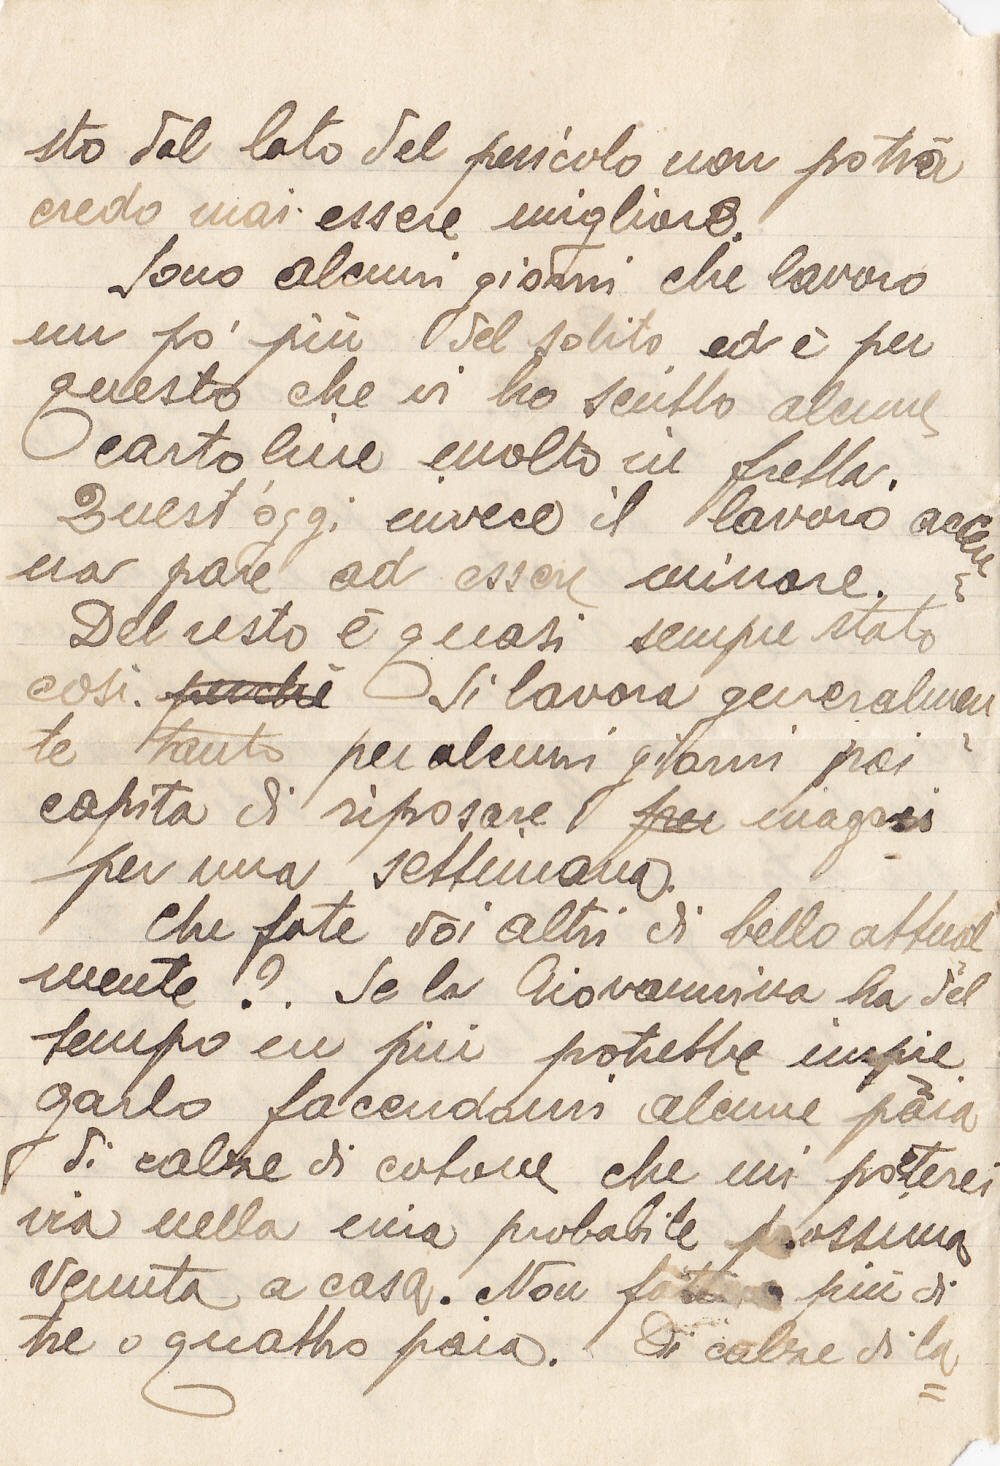 sto dal lato del pericolo non potrà
credo mai essere migliore.
Sono alcuni giorni che lavoro
un po' più del solito ed è per
questo che vi ho scritto alcune
cartoline molto in fretta.
Quest'oggi invece il lavoro accen
na pare ad essere minore.
Del resto è quasi sempre stato
così. perchè Si lavora generalmen
te tanto per alcuni giorni poi
capita di riposare per magari
per una settimana.
Che fate voi altri di bello attual
mente?. Se la Giovannina ha del
tempo in più potrebbe impie
garlo facendomi alcune paia
di calze di cotone che mi porterei
via nella mia probabile prossima
venuta a casa. Non più di
tre o quattro paia. Di calze di la=